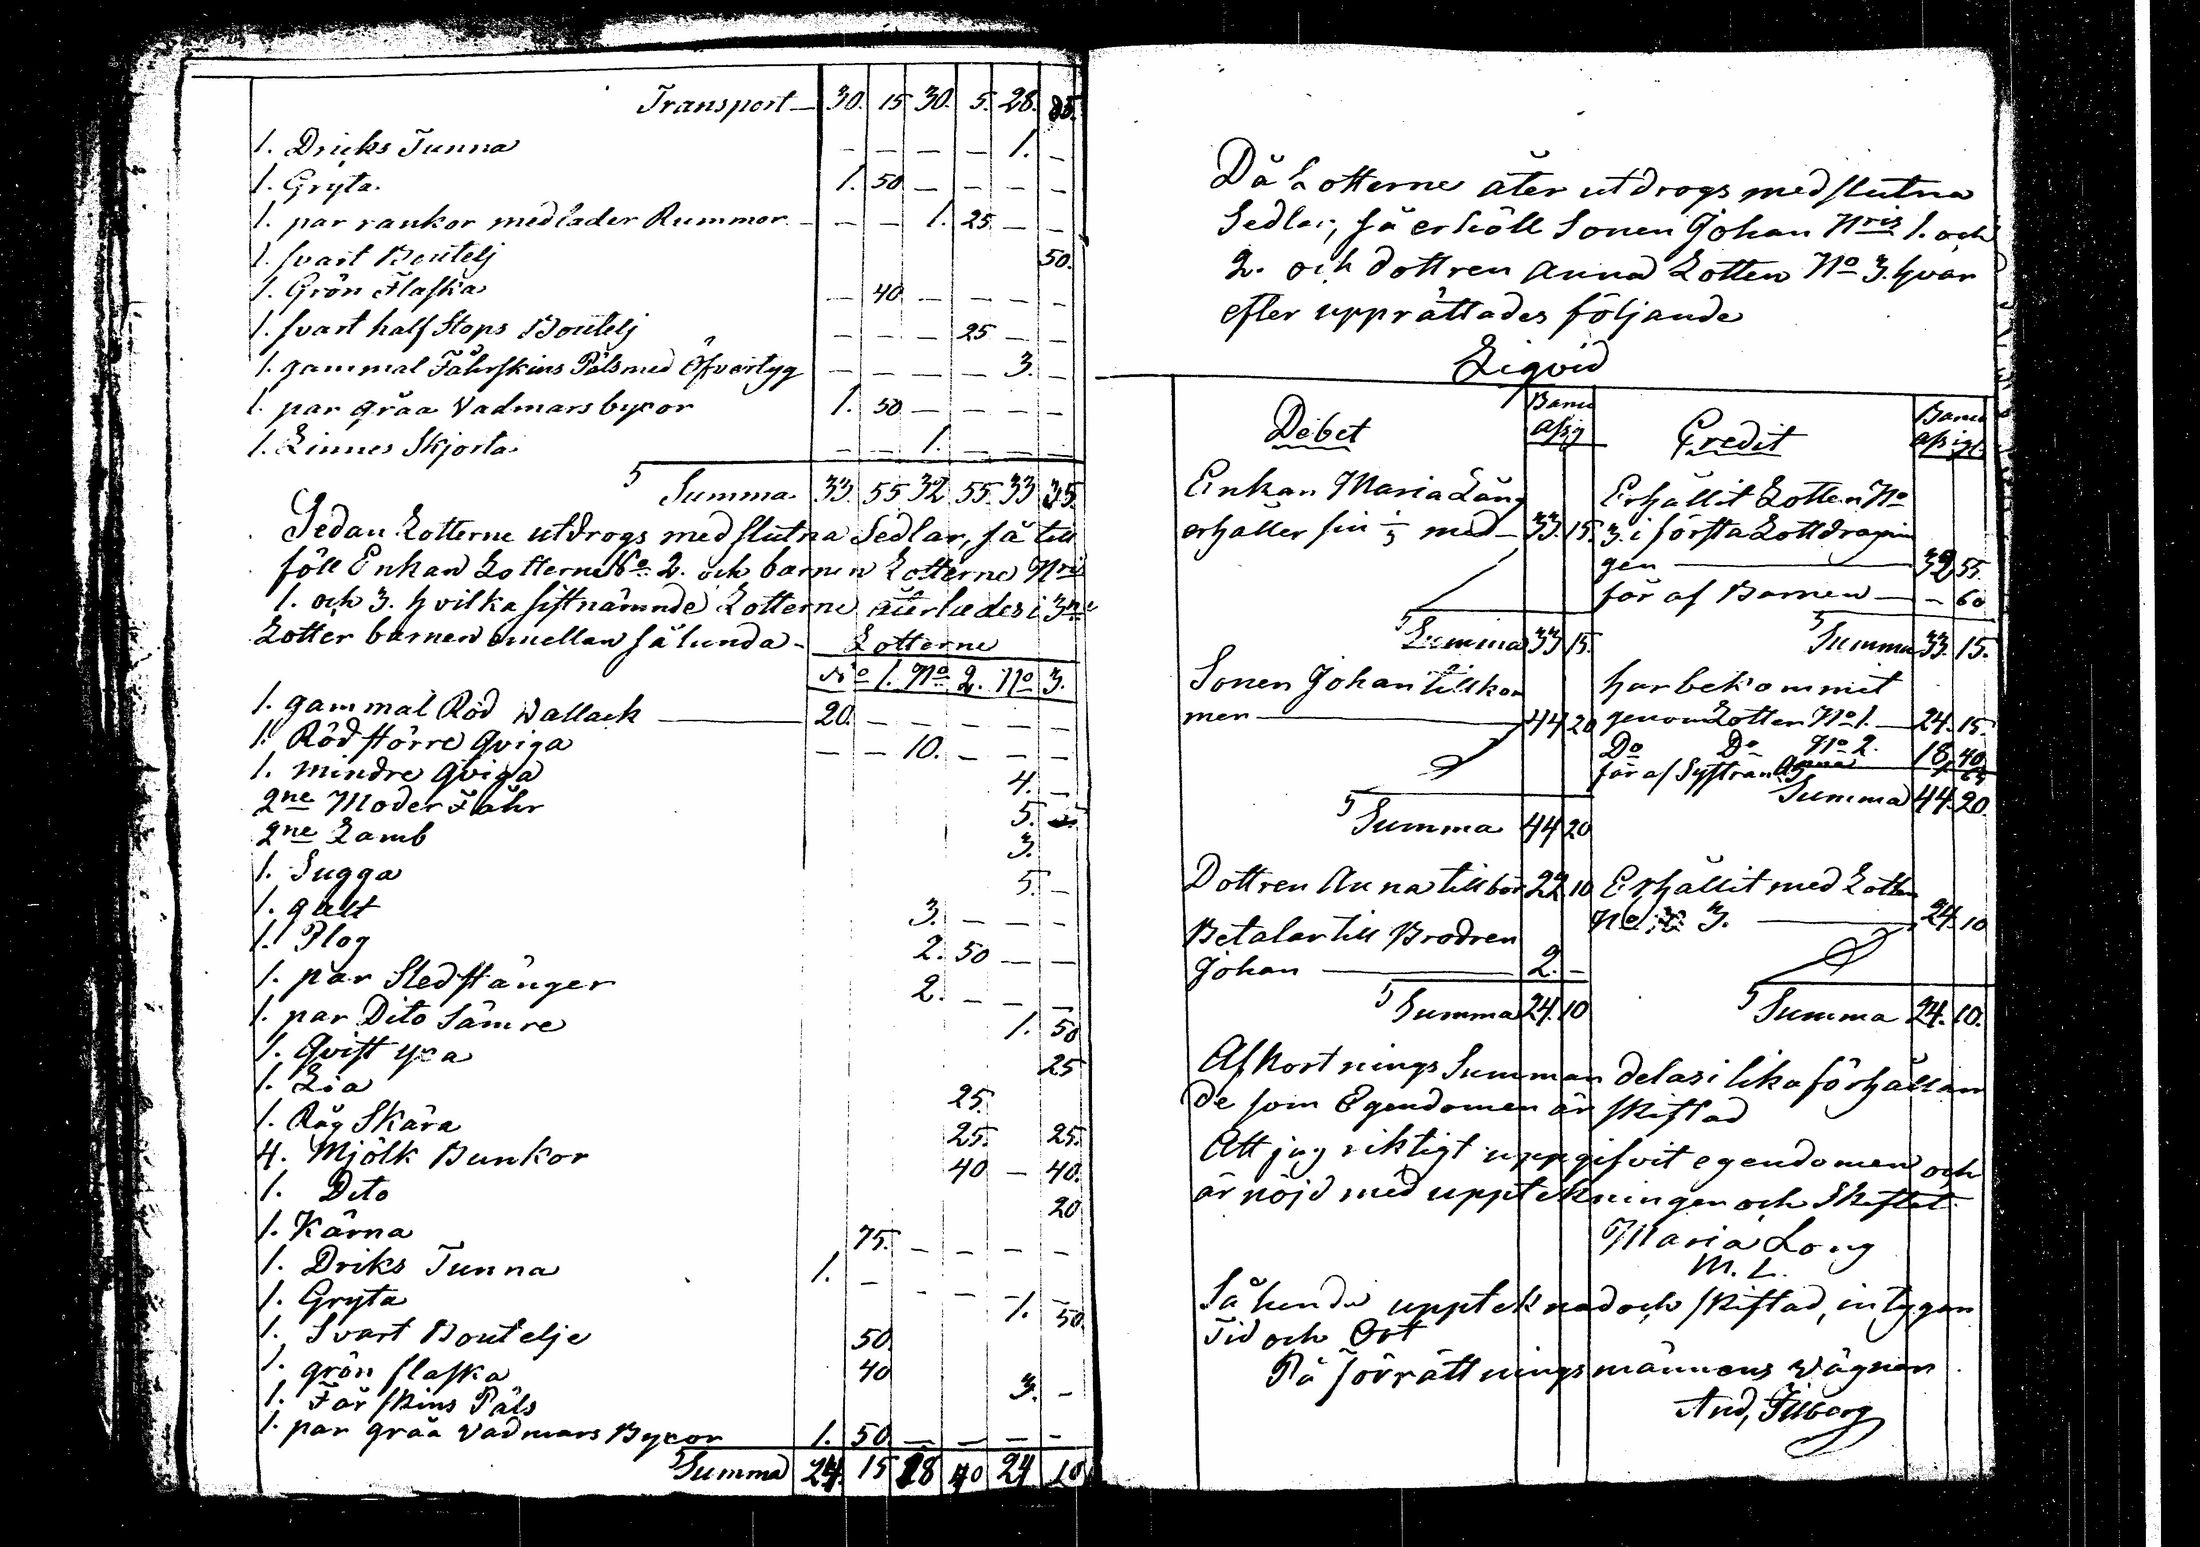 Transport — 30. 15 30. 5. 28. 85.
1. Dricks Tunna — — — — 1. —
1. Gryta. 1. 50 — — — —
1. par rankor med lader Rummor — — 1. 25 — —
1. svart Boutelj 50.
1. Grön Flaska — 40 — — — —
1. svart half Stops Boutelj — — — 25 — —
1. gammal Fåhrskins Päls med Öfvertyg — — — — 3. —
1. par gråa Vadmars byxor 1. 50 — — — —
1. Linnes Skjorta — — 1. — — —
Summa 33. 55 32 55. 33 35.
Sedan Lotterne utdrogs med slutna Sedlar, så till
föll Enkan Lotterne No 2. och barnen Lotterne Nris
1. och 3. hvilka sistnämnde Lotterne återlades i 3ne
Lotter barnen emellan sålunda — Lotterne
No 1. No 2. No 3.
1. gammal Röd Wallack — 20. — — — — —
1. Röd större Qviga — — 10. — — —
1. mindre Qviga 4. —
2ne Moder Fåhr 5. —
2ne Lamb 3.
1. Sugga 5. —
1. galt 3. — — —
1. Plog 2. 50 — —
1. par Sledstänger 2. — — —
1. par Dito Sämre 1. 50
1. Qvist yxa 25
1. Lia 25.
1. Råg Skära 25. 25.
4. Mjölk Bunkor 40 — 40.
1. Dito 20
1. Kärna 75. — — — —
1. Driks Tunna 1. — — — — —
1. Gryta 1. 50.
1. Svart Boutelje 50.
1. grön flaska 40
1. Fårskins Päls 3. —
1. par gråa Vadmars Byxor 1. 50 — — — —
Summa 24. 15 18 40 24 10
Då Lotterne åter utdrogs med slutna
Sedlar, så erhöll Sonen Johan Nris 1. och
2. och dottren Anna Lotten No 3. hvar
efter upprättades följande
Liqvid
Debet Banco assig Credit Banco assigt
Enkan Maria Lång Erhållit Lotten No
erhåller sin 1/3 med — 33. 15. 3. i första Lottdragnin
gen — 32 55.
får af Barnen — — 60
Summa 33 15. Summa 33. 15.
Sonen Johan tillkom har bekommit
mer — 44 20 genom Lotten No 1. — 24. 15.
Do Do No 2. 18. 40
får af Systran Anna
Summa 44. 20.
Summa 44 20
Dottren Anna tillbör 22 10 Erhållit med Lotten
No 3. — 24. 10
Betalar till Brodren
Johan — 2. —
Summa 24. 10 Summa 24. 10.
Afkortnings Summan delas i lika förhållan
de som Egendomen är skiftad
Att jag riktigt uppgifvit egendomen och
är nöjd med uppteckningen och Skiftet.
Maria Long
M. L.
Så hunda upptecknad och skiftad, intygan
Tid och Ort
På förrättnings männens vägnar
And,